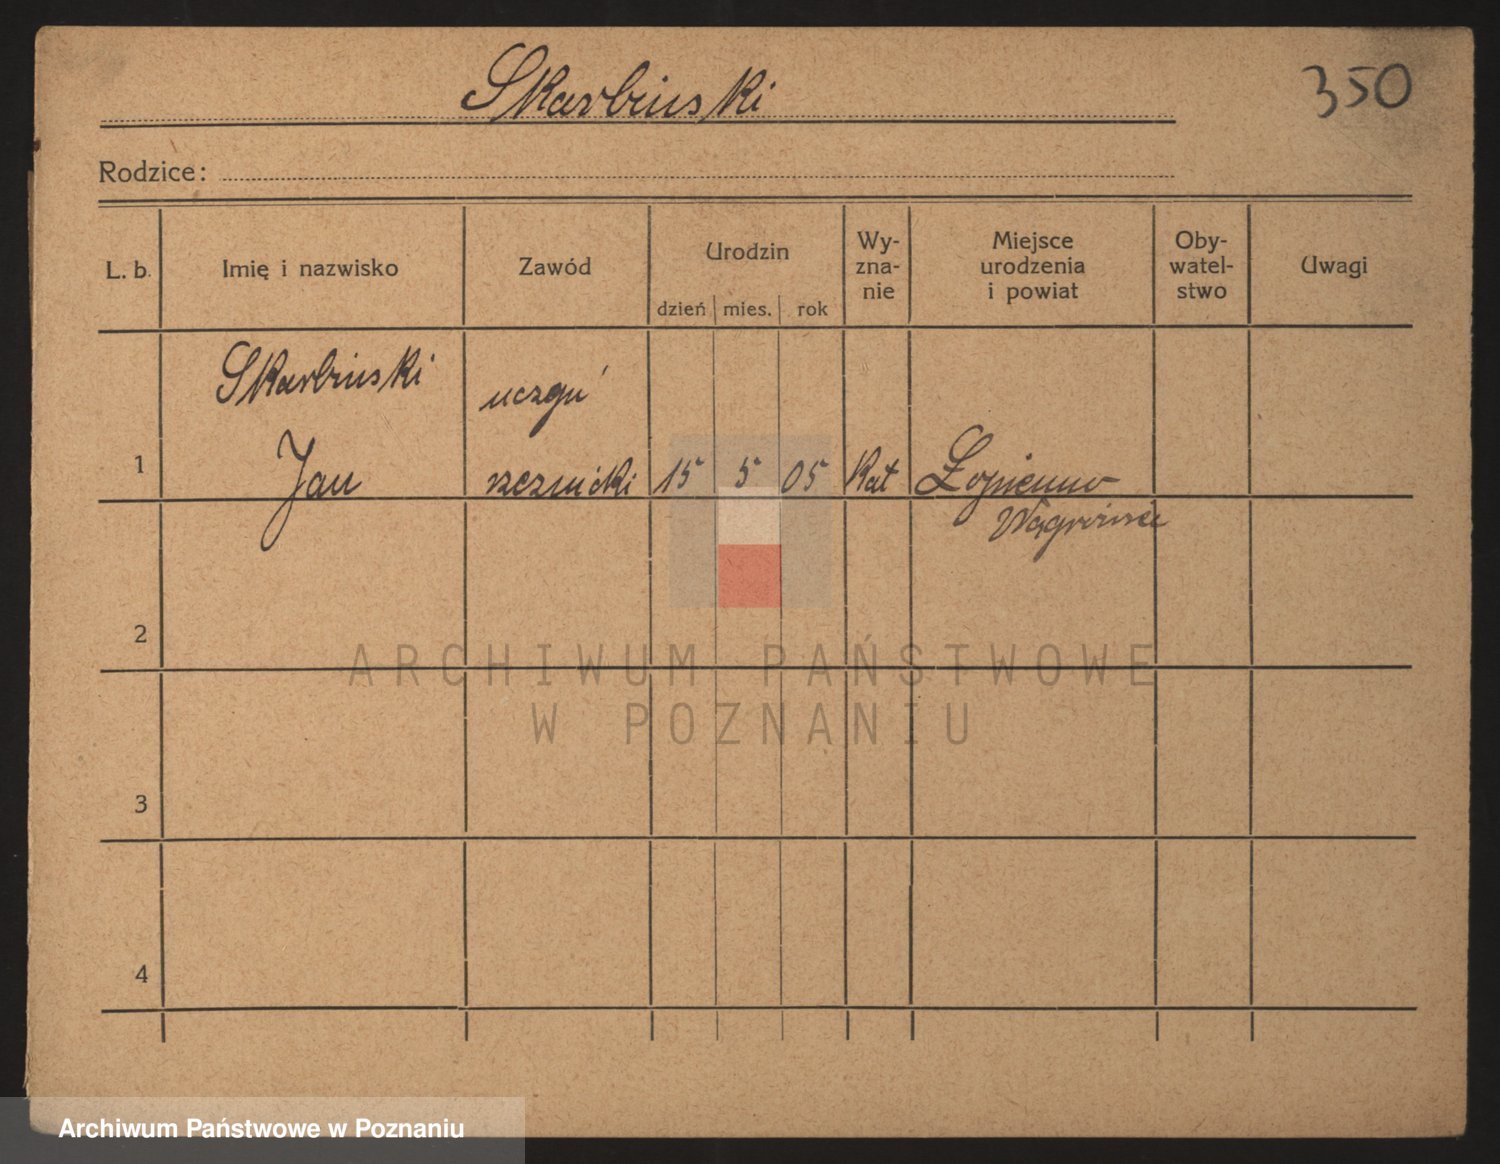 Skarbinski
350
Rodzice:
L. b.
Imię i nazwisko
Zawód
Urodzin
dzień mies. rok
Wy-
zna-
nie
Miejsce
urodzenia
i powiat
Oby-
watel-
stwo
Uwagi
Skarbinski
uczeń
1 Jan rzeźnicki 15 5 05 Kat Łopienno
2
3
4
ARCHIWUM PAŃSTWOWE
W POZNANIU
Archiwum Państwowe w Poznaniu